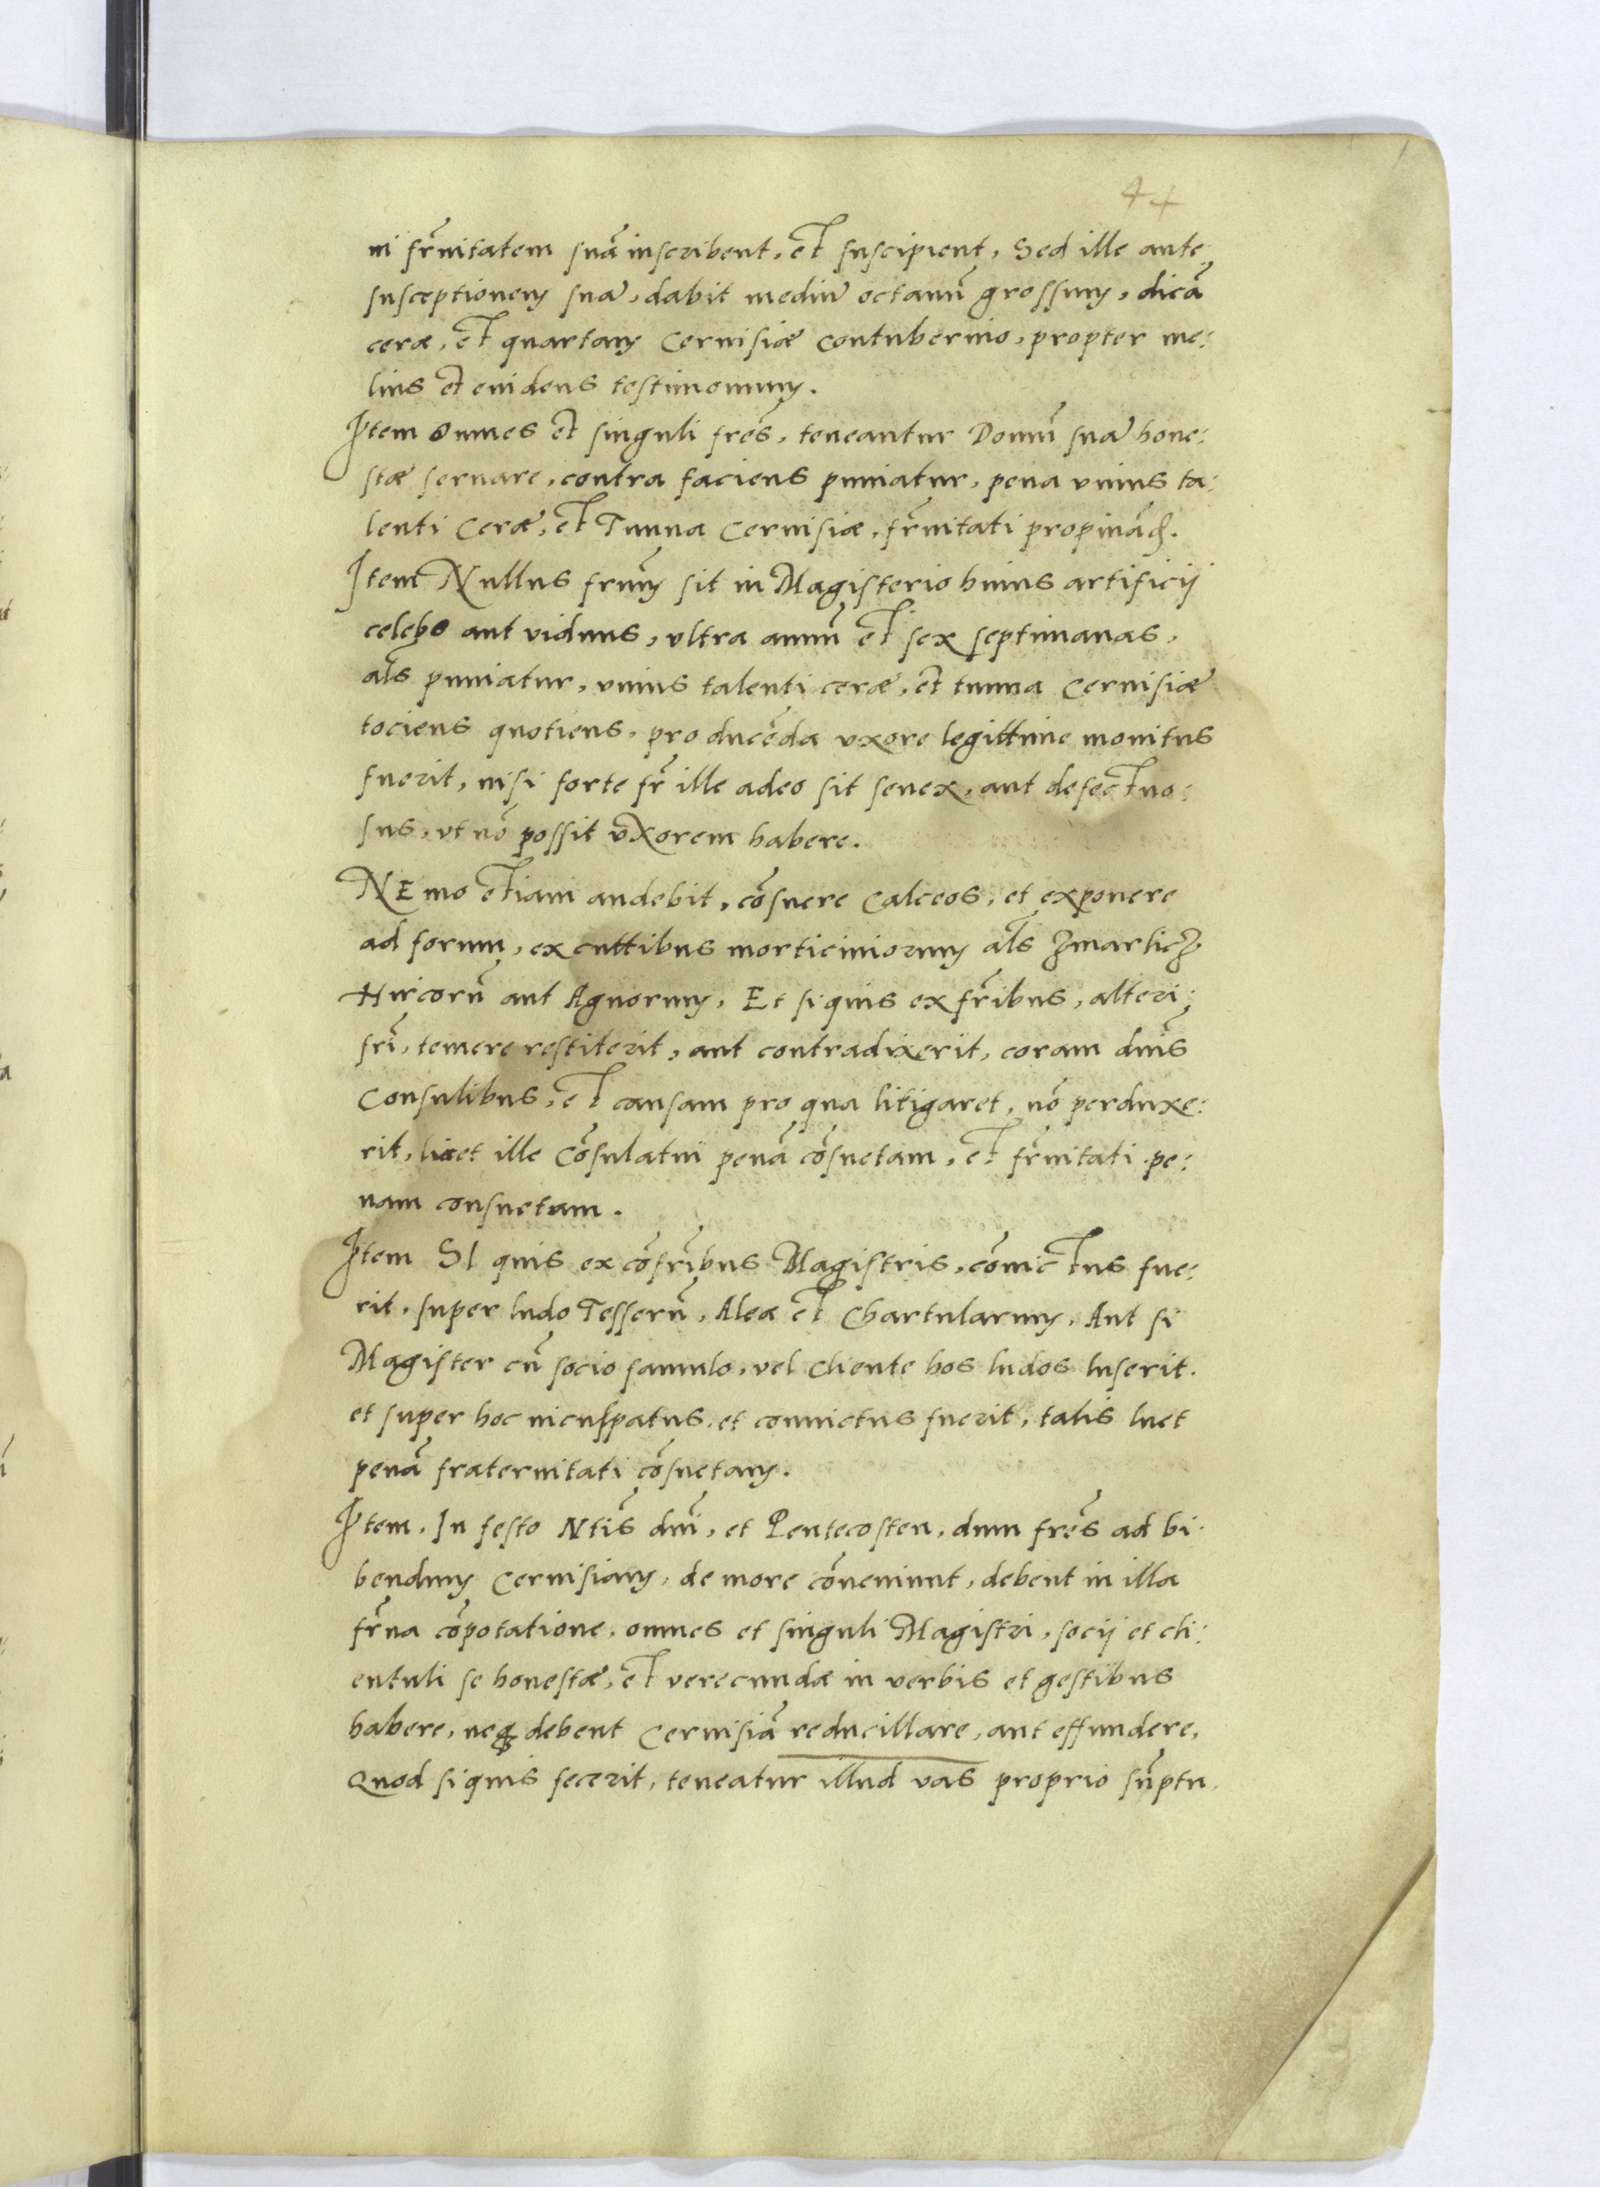 44
in fr̃nitatem suã inscribent, et suscipient, Sed ille ante
susceptionem suã, dabit mediũ octauũ grossum, dicã
ceræ, et quartam Ceruisiæ contubernio, propter me:
lius et euidens testimonium.
Item Omnes et singuli fr̃es, teneantur Domũ suã hone:
stæ seruare, contra faciens puniatur, pena vnius ta:
lenti Ceræ, et Tunna Ceruisiæ, fr̃nitati propinãd.
Item Nullus frm̃ sit in Magisterio huius artificij
celebs aut viduus, vltra annũ et sex septimanas,
als̃ puniatur, vnius talenti ceræ, et tunna Ceruisiæ
tociens quotiens, pro ducẽda vxore legittime monitus
fuerit, nisi forte fr̃ ille adeo sit senex, aut defectuo:
sus, vt nõ possit vxorem habere.
NEmo etiam audebit, cõsuere Calceos, et exponere
ad forum, ex cuttibus morticiniorum als̃ zmarlich
Hircorũ aut Agnorum, Et si quis ex fr̃ibus, alteri
fr̃i, temere restiterit, aut contradixerit, coram dñis
Consulibus, et causam pro qua litigaret, nõ perduxe:
rit, luet ille Cõsulatui penã cõsuetam, et fr̃nitati pe:
nam consuetam.
Item SI quis ex cõfr̃ibus Magistris, cõuictus fue:
rit, super ludo Tesserũ, Aleæ et Chartularum, Aut si
Magister cũ socio famulo, vel Cliente hos ludos luserit.
et super hoc inculpatus, et conuictus fuerit, talis luet
penã fraternitati cõsuetam.
Item, In festo Ntis̃ dñi, et Pentecosten, dum fr̃es ad bi
bendum Ceruisiam, de more cõueniunt, debent in illa
fr̃na cõpotatione, omnes et singuli Magistri, socij et cli:
entuli se honestæ, et verecundæ in verbis et gestibus
habere, neq debent Ceruisiã reducillare, aut effundere,
Quod si quis fecerit, teneatur illud vas proprio sũptu